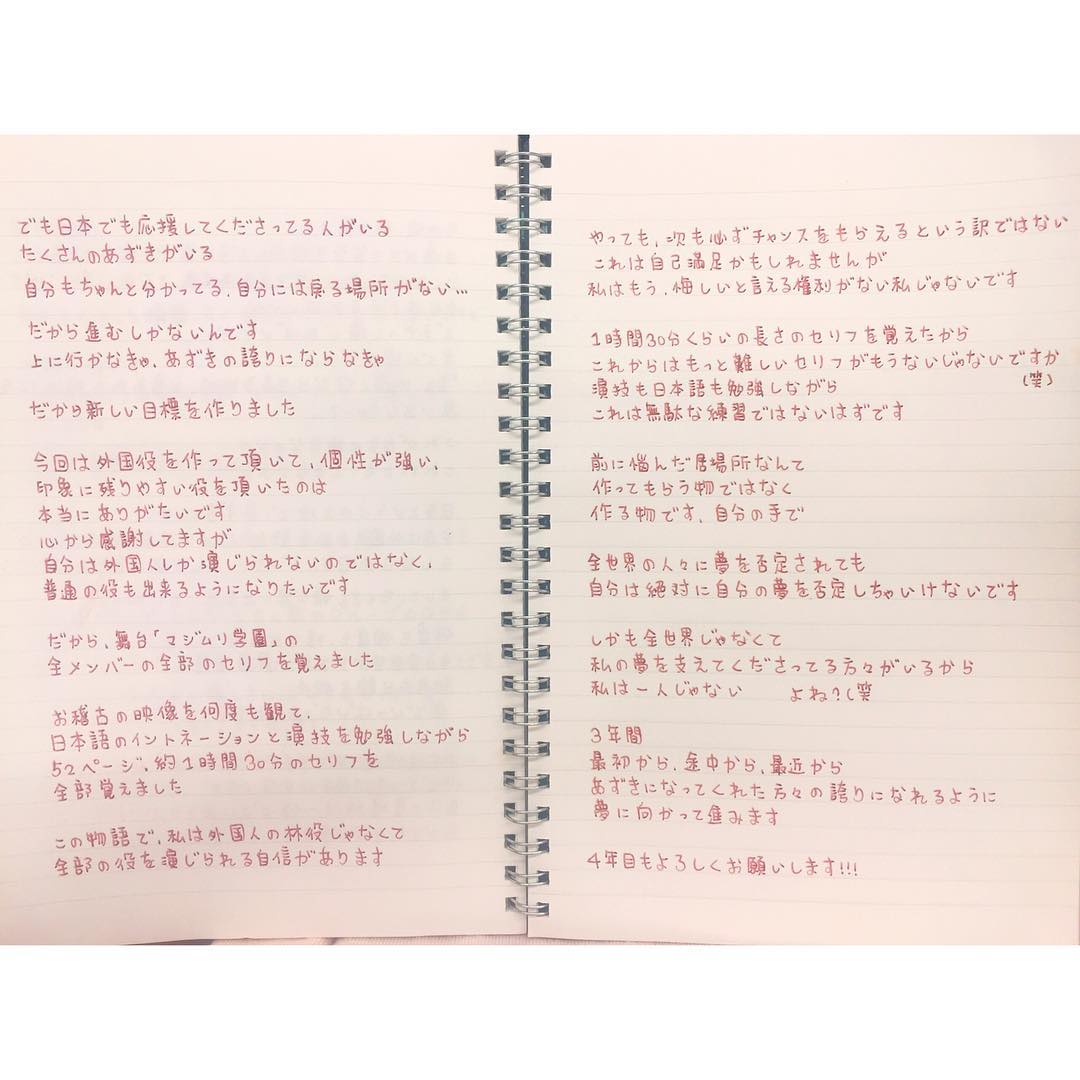 でも日本でも応援してくださってる人がいる
たくさんのあずきがいる
自分もちゃんと分かってる、自分には戻る場所がない…
だから進むしかないんです
上に行かなきゃ、あずきの誇りにならなきゃ
だから新しい目標を作りました
今回は外国役を作って頂いて、個性が強い、
印象に残りやすい役を頂いたのは
本当にありがたいです
心から感謝してますが
自分は外国人しか演じられないのではなく、
普通の役も出来るようになりたいです
だから、舞台「マジムリ学園」の
全メンバーの全部のセリフを覚えました
お稽古の映像を何度も観て、
日本語のイントネーションと演技を勉強しながら
52ページ、約1時間30分のセリフを
全部覚えました
この物語で、私は外国人の林役じゃなくて
全部の役を演じられる自信があります
やっても、次も必ずチャンスをもらえるという訳ではない
これは自己満足かもしれませんが
私はもう、悔しいと言える権利がない私じゃないです
1時間30分くらいの長さのセリフを覚えたから
これからはもっと難しいセリフがもうないじゃないですか
(笑)
演技も日本語も勉強しながら
これは無駄な練習ではないはずです
前に悩んだ居場所なんて
作ってもらう物ではなく
作る物です、自分の手で
全世界の人々に夢を否定されても
自分は絶対に自分の夢を否定しちゃいけないです
しかも全世界じゃなくて
私の夢を支えてくださってる方々がいるから
私は一人じゃない よね?(笑
3年間
最初から、途中から、最近から
あずきになってくれた方々の誇りになれるように
夢に向かって進みます
4年目もよろしくお願いします!!!